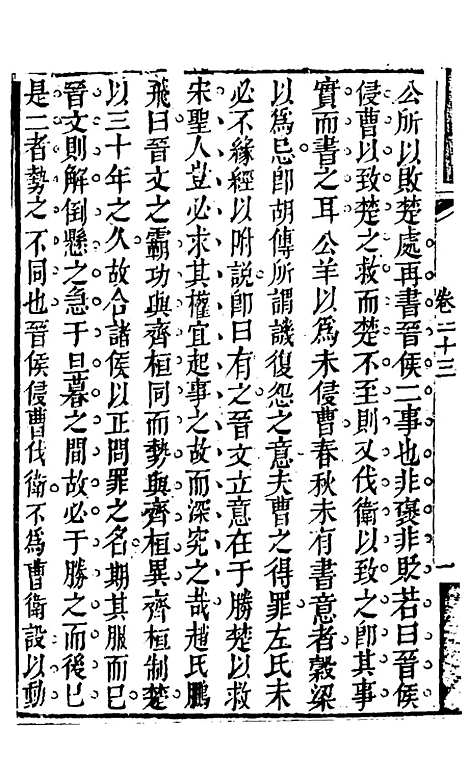 卷二十三
一
公所以敗楚處再書晉侯二事也非褒非貶若曰晉侯
侵曹以致楚之救而楚不至則又伐衛以致之卽其事
實而書之耳公羊以爲未侵曹春秋未有書意者穀梁
以爲忌卽胡傳所謂譏復怨之意夫曹之得罪左氏未
必不緣經以附說卽曰有之晉文立意在于勝楚以救
宋聖人豈必求其權宜起事之故而深究之哉趙氏鵬
飛曰晉文之霸功與齊桓同而勢與齊桓異齊桓制楚
以三十年之久故合諸侯以正問罪之名期其服而已
晉文則解倒懸之急于旦暮之間故必于勝之而後已
是二者勢之不同也晉侯侵曹伐衛不爲曹衛設以動